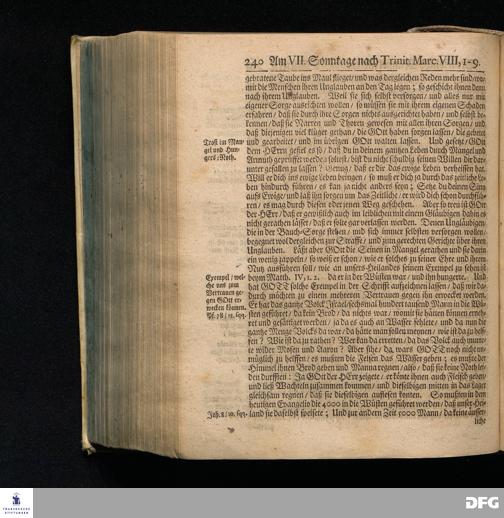 240 Am VII. Sonntage nach Trinit. Marc. VIII, 1-9.
gebratene Taube ins Maul flieget / und was dergleichen Reden mehr sind / wo-
mit die Menschen ihren Unglauben an den Tag legen; so geschicht ihnen denn
nach ihrem Unglauben. Weil sie sich selbst versorgen / und alles nur mit
eigener Sorge ausrichten wollen / so müssen sie mit ihrem eigenen Schaden
erfahren / daß sie durch ihre Sorgen nichts ausgerichtet haben / und selbst be-
kennen / daß sie Narren und Thoren gewesen mit allen ihren Sorgen / und
daß diejenigen viel klüger gethan / die GOtt haben sorgen lassen / die gebetet
Trost im Man-
gel und Hun-
gers-Noth.
und gearbeitet / und im übrigen GOtt walten lassen. Und gesetzt / GOtt
dem HErrn gefiel es so / daß du in deinem gantzen Leben durch Mangel und
Armuth geprüffet werden soltest / bist du nicht schuldig seinen Willen dir dar-
unter gefallen zu lassen? Genug / daß er dir das ewige Leben verheissen hat.
Will er dich ins ewige Leben bringen / so muß er dich ja durch das zeitliche Le-
ben hindurch führen / es kan ja nicht anders seyn; Setze du deinen Sinn
aufs Ewige / und laß ihn sorgen um das Zeitliche / er wird dich schon durchfüh-
ren / es mag durch diesen oder jenen Weg geschehen. Aber so treu ist GOtt
der HErr / daß er gewißlich auch im leiblichen mit einem Gläubigen dahin es
nicht gerathen lässet / daß er solte gar verlassen werden. Denen Ungläubigen /
die in der Bauch-Sorge stehen / und sich immer selbsten versorgen wollen /
begegnet wol dergleichen zur Straffe / und zum gerechten Gerichte über ihren
Unglauben. Läßt aber GOtt die Seinen in Mangel gerathen und sie darin
ein wenig zappeln / so weiß er schon / wie er solches zu seiner Ehre und ihrem
Nutz ausführen soll / wie an unsers Heilandes seinem Exempel zu sehen ist
Exempel / wel-
che uns zum
Vertrauen ge-
gen GOtt er-
wecken können.
Ps. 78/19. sqq.
beym Matth. IV, 1. 2. da er in der Wüsten war / und ihn hungerte. Und
hat GOTT solche Exempel in der Schrifft aufzeichnen lassen / daß wir da-
durch möchten zu einem mehreren Vertrauen gegen ihn erwecket werden.
Er hat das gantze Volck Israel / sechsmal hundert tausend Mann in die Wü-
sten geführet / da kein Brod / da nichts war / womit sie hätten können erneh-
ret und gesättiget werden / ja da es auch an Wasser fehlete / und da nun die
gantze Menge Volcks da war / da hätte man sollen meynen / wie ist da zu helf-
fen? Wie ist da zu rathen? Wer kan da erretten / da das Volck auch murre-
te wider Mosen und Aaron? Aber sihe / da wars GOTT noch nicht un-
müglich zu helffen / es musten die Felsen das Wasser geben; es muste der
Himmel ihnen Brod geben und Manna regnen / also / daß sie keine Noth lei-
den durfften: Ja GOtt der HErr zeigete / er könte ihnen auch Fleisch geben /
und ließ Wachteln zusammen kommen / und dieselbigen mitten in das Lager
gleichsam regnen / daß sie dieselbigen auflesen konten. So musten in dem
heutigen Evangelio die 4000 in die Wüsten geführet werden / daß unser Hei-
Joh. 6/10. sqq.
land sie daselbst speisete; Und zur andern Zeit 5000 Mann / da keine äusser-
liche
FRANCKESCHE
STIFTUNGEN
DFG